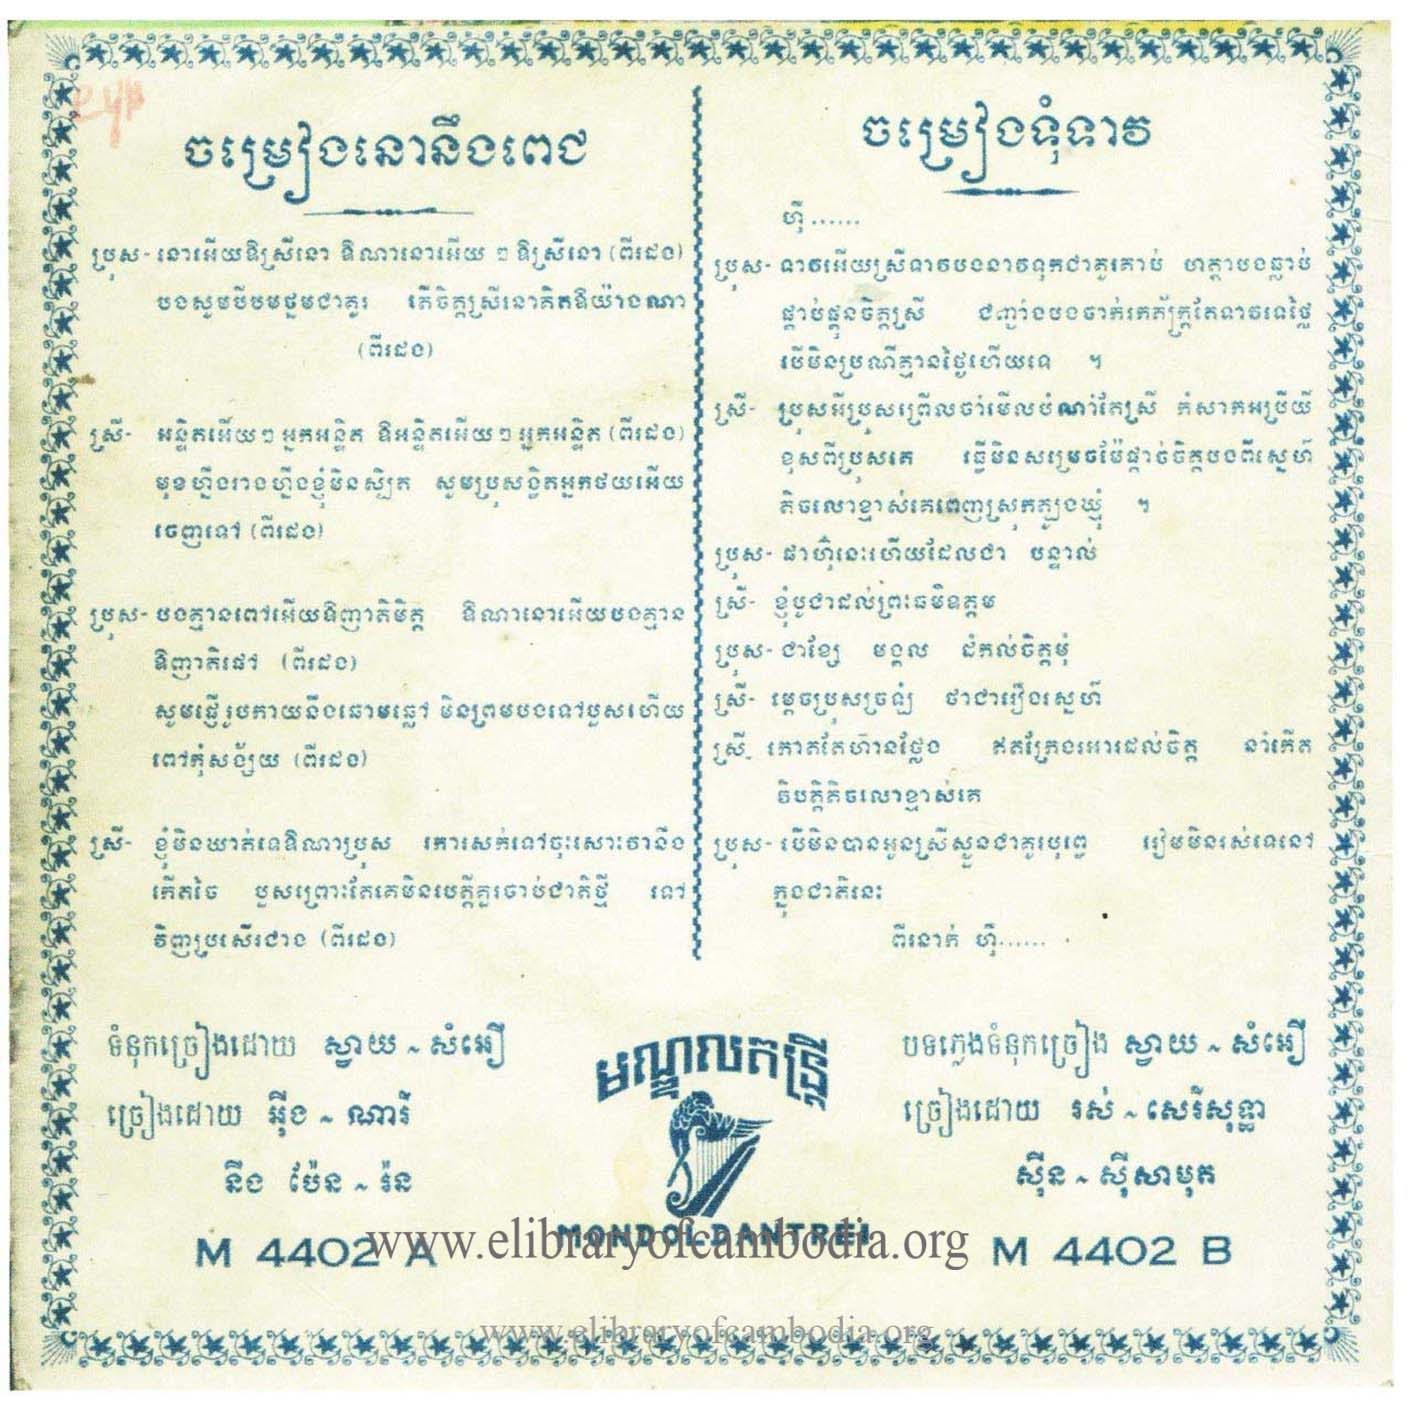 ចម្រៀងនោនឹងពេជ
ប្រុស- នោអើយឱស្រីនោ ឱណានោអើយ ៗ ឱស្រីនោ (ពីរដង)
បងសូមបីបមថ្នមជាគូរ តើចិត្តស្រីនោគិតឱយ៉ាងណា
(ពីរដង)
ស្រី- អន្ទិតអើយៗ អ្នកអន្ទិត ឱអន្ទិតអើយៗ អ្នកអន្ទិត (ពីរដង)
មុខហ្នឹងរាងហ្នឹងខ្ញុំមិនស្បិត សូមប្រុសង្វិតអ្នកថយអើយ
ចេញទៅ (ពីរដង)
ប្រុស- បងគ្មានពៅអើយឱញាតិមិត្ត ឱណានោអើយបងគ្មាន
ឱញាតិផៅ (ពីរដង)
សូមផ្ញើរូបកាយនឹងឆោមឆ្លៅ មិនព្រមបងទៅបួសហើយ
ពៅកុំសង្ស័យ (ពីរដង)
ស្រី- ខ្ញុំមិនឃាត់ទេឱណាប្រុស កោរសក់ទៅចុះសោះវានឹង
កើតចៃ បួសព្រោះតែគេមិនមេត្តីគួរចាប់ជាតិថ្មី ទៅ
វិញប្រសើរជាង (ពីរដង)
ទំនុកច្រៀងដោយ ស្វាយ ~ សំអឿ
ច្រៀងដោយ អ៊ីង ~ ណារី
នឹង ប៉ែន ~ រ៉ន
M 4402 A
ចម្រៀងទុំទាវ
ហ៊ឺ ......
ប្រុស- ទាវអើយស្រីទាវបងនាវទុកជាគូរគាប់ ហត្ថាបងធ្លាប់
ផ្គាប់ផ្គុនចិត្តស្រី ជញ្ជាំងបងចាក់រកភ័ក្ត្រតែទាវទេថ្លៃ
បើមិនប្រណីគ្មានថ្ងៃហើយទេ ។
ស្រី- ប្រុសអីប្រុសព្រើលចាំមើលបំណាំតែស្រី កំសាកអប្រីយ៍
ខុសពីប្រុសគេ ធ្វើមិនសម្រេចម៉ែផ្តាច់ចិត្តបងពីស្នេហ៍
តិចលោខ្មាស់គេពេញស្រុកត្បូងឃ្មុំ ។
ប្រុស- ផាហ៊ុំនេះហើយដែលជា បន្ទាល់
ស្រី- ខ្ញុំបូជាដល់ព្រះធម៌ឧត្តម
ប្រុស- ជាខ្សែ មង្គល ដំកល់ចិត្តមុំ
ស្រី- ម្តេចប្រុសច្រឡំ ថាជារឿងស្នេហ៍
ស្រី- កោតតែហ៊ានថ្លែង ឥតក្រែងអារដល់ចិត្ត នាំកើត
វិបត្តិតិចលោខ្មាស់គេ
ប្រុស- បើមិនបានអូនស្រីស្ងួនជាគូបុព្វេ រៀមមិនរស់ទេនៅ
ក្នុងជាតិនេះ
ពីរនាក់ ហ៊ឺ......
បទភ្លេងទំនុកច្រៀង ស្វាយ ~ សំអឿ
ច្រៀងដោយ រស់ ~ សេរីសុទ្ធា
ស៊ីន ~ ស៊ីសាមុត
M 4402 B
មណ្ឌលតន្ត្រី
MONDOL DANTREI
www.elibraryofcambodia.org
www.elibraryofcambodia.org